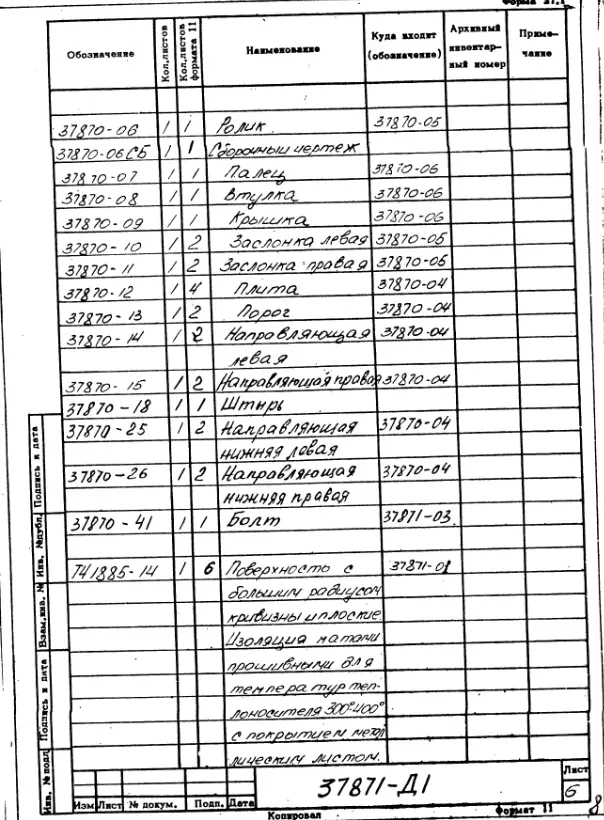 Форма 21.1
Обозначение Кол.листов Кол.листов формата 11 Наименование Куда входит (обозначение) Архивный инвентар-ный номер Приме-чание
37870-06 1 1 Ролик 37870-05
37870-06СБ 1 1 Сборочный чертеж
37870-07 1 1 Палец 37870-06
37870-08 1 1 Втулка 37870-06
37870-09 1 1 Крышка 37870-06
37870-10 1 2 Заслонка левая 37870-05
37870-11 1 2 Заслонка правая 37870-05
37870-12 1 4 Плита 37870-04
37870-13 1 2 Порог 37870-04
37870-14 1 2 Направляющая 37870-04
левая
37870-15 1 2 Направляющая правая 37870-04
37870-18 1 1 Штырь
37870-25 1 2 Направляющая 37870-04
нижняя левая
37870-26 1 2 Направляющая 37870-04
нижняя правая
37870-41 1 1 Болт 37871-03
Т41885-14 1 6 Поверхность с 37871-01
большим радиусом
кривизны и плоские
Изоляция матами
прошивными для
температур теп-
лоносителя 300°-400°
с покрытием метал
лическим листом.
Инв. № подл. Подпись и дата Взам.инв. № Инв. №дубл. Подпись и дата
37871-Д1
Лист
6
Изм Лист № докум. Подп. Дата
Копировал Формат 11
8